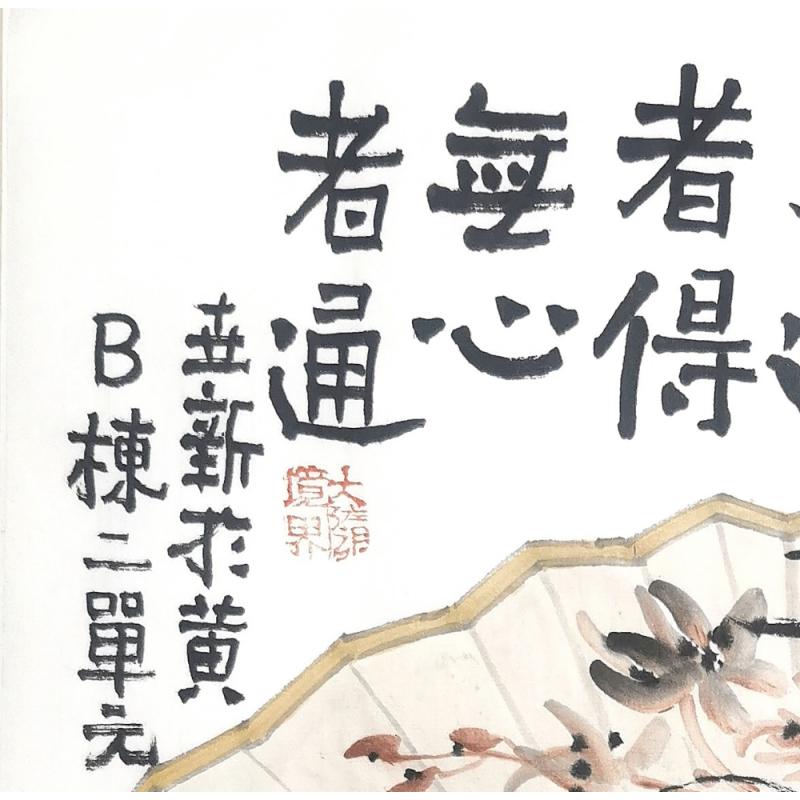 者得
無心
者通
世新於黄
B棟二單元
大
境界